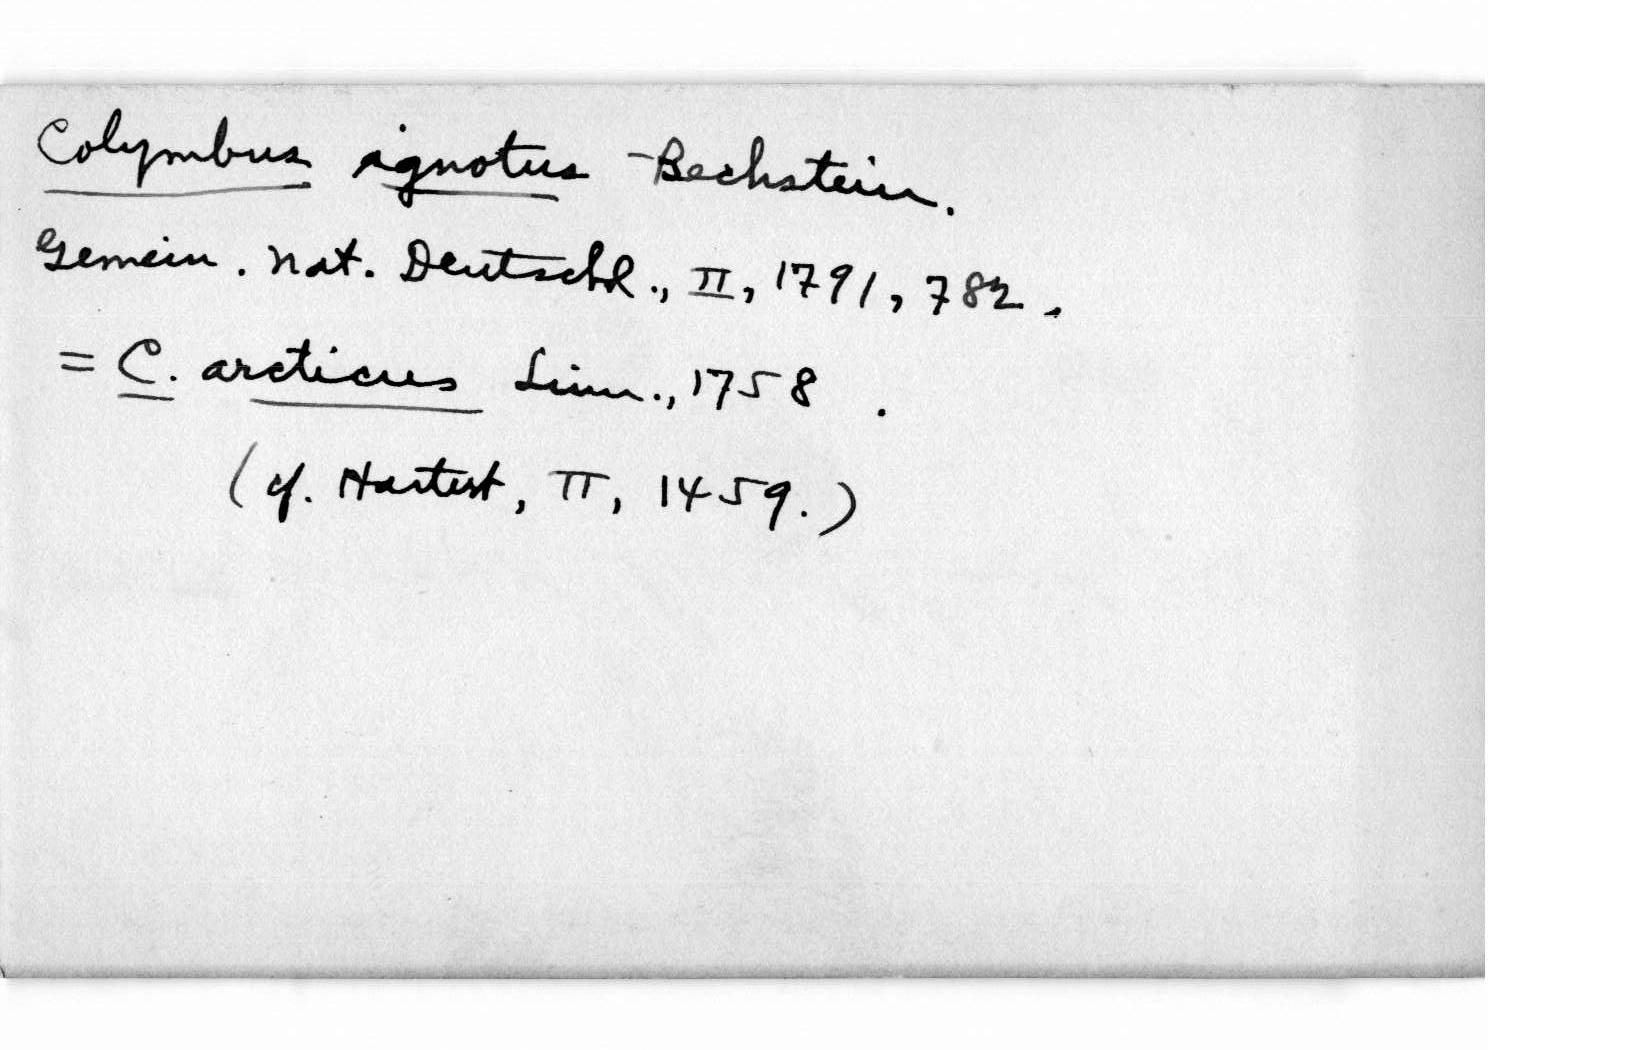 Colymbus ignotus Bechstein.
Gemein. Nat. Deutschl., II, 1791, 782.
= C. arcticus Linn., 1758.
(cf. Hartert, II, 1459.)